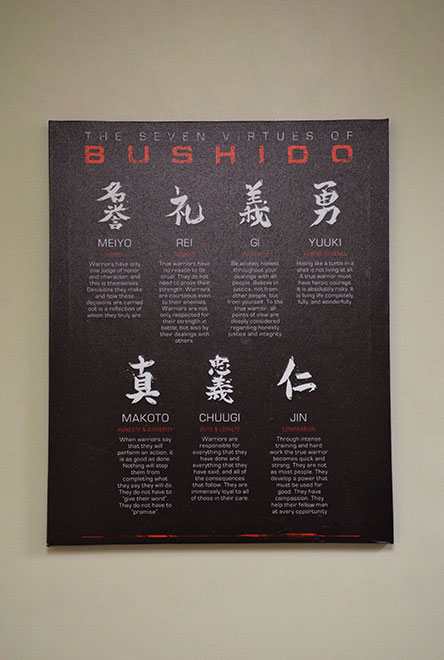 THE SEVEN VIRTUES OF
BUSHIDO
名誉 礼 義 勇
MEIYO REI GI YUUKI
HONOR
Warriors have only
one judge of honor
and character, and
this is themselves.
Decisions they make
and how these
decisions are carried
out is a reflection of
whom they truly are.
RESPECT
True warriors have
no reason to be
cruel. They do not
need to prove their
strength. Warriors
are courteous even
to their enemies.
Warriors are not
only respected for
their strength in
battle, but also by
their dealings with
others.
Be acutely honest
throughout your
dealings with all
people. Believe in
justice, not from
other people, but
from yourself. To the
true warrior, all
points of view are
deeply considered
regarding honesty,
justice and integrity.
HEROIC COURAGE
Hiding like a turtle in a
shell is not living at all.
A true warrior must
have heroic courage.
It is absolutely risky. It
is living life completely,
fully, and wonderfully.
真 忠義 仁
MAKOTO CHUUGI JIN
HONESTY & SINCERITY
When warriors say
that they will
perform an action, it
is as good as done.
Nothing will stop
them from
completing what
they say they will do.
They do not have to
"give their word".
They do not have to
"promise".
DUTY & LOYALTY
Warriors are
responsible for
everything that they
have done and
everything that they
have said, and all of
the consequences
that follow. They are
immensely loyal to all
of those in their care.
COMPASSION
Through intense
training and hard
work the true warrior
becomes quick and
strong. They are not
as most people. They
develop a power that
must be used for
good. They have
compassion. They
help their fellow man
at every opportunity.